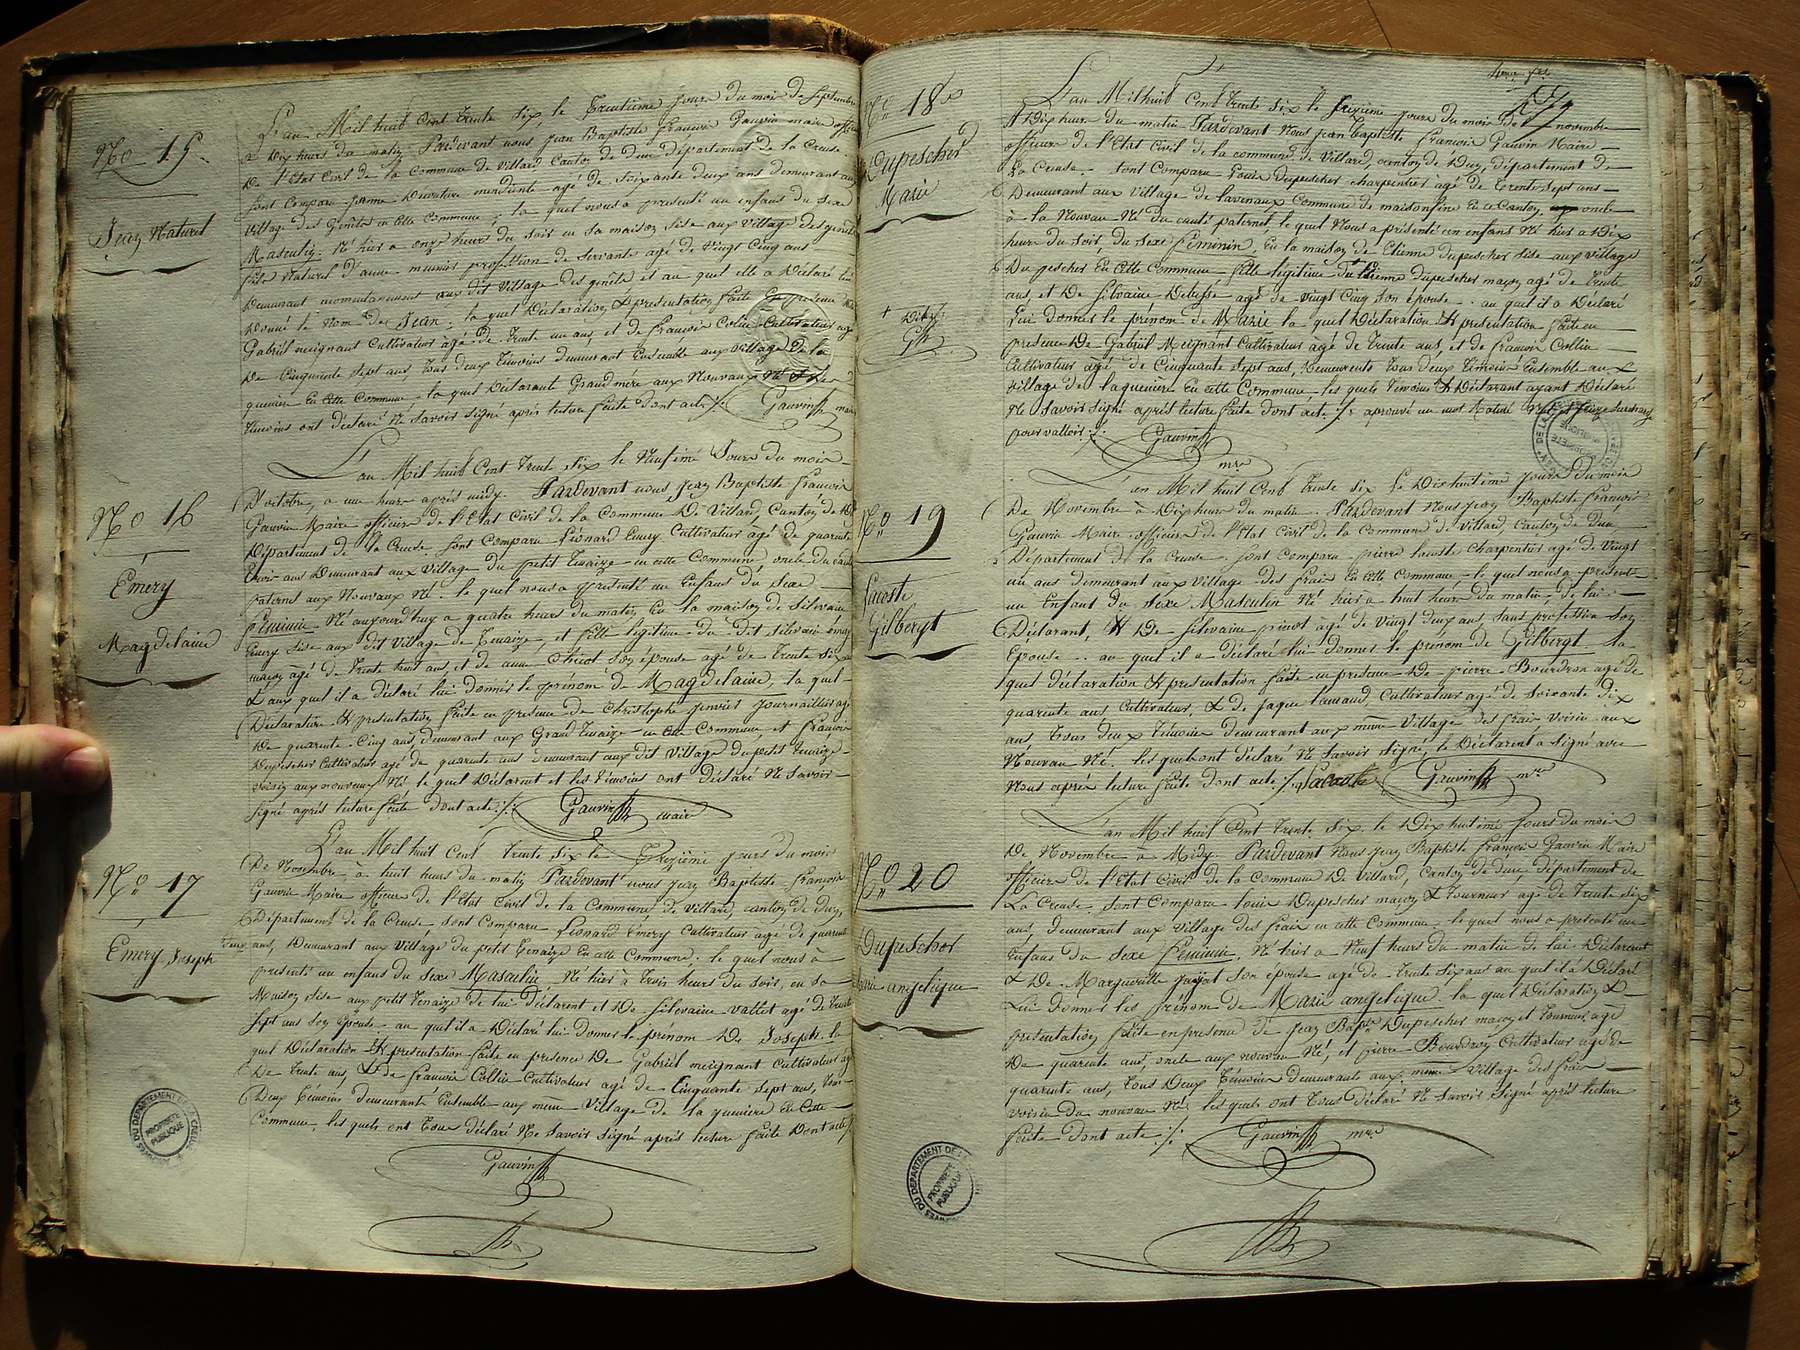 No 15.
Jean Naturel
L'an Mil huit Cent trente Six, le Trentième jour du mois de Septembre
a Dix heures du matin Pardevant nous Jean Baptiste François Gauvin maire officier
De l'Etat Civil de la Commune de Villard Canton de Dun département de la Creuse.
sont Comparu Jeanne mendiente agé de Soixante deux ans demeurant aux
Village des Genêts en Cette Commune ; la quel nous a presenté un enfans du Sexe
Masculin. Né hier a onze heures du Soir en sa maison sise aux Village des genêts
fils Naturel d'anne meunier profession de Servante agé de Vingt Cinq ans
Demeurant momentanement aux dit Village des genêts et au quel elle a Déclaré lui
Donné le Nom de Jean ; la quel Déclaration & presentation faite En presence De
Gabriel meignant Cultivateur agé de trente un ans, et de françois Colin Cultivateur agé
De Cinquante Sept ans, tous deux Temoins demeurant Ensemble aux Village De la
queniere En Cette Commune la quel Déclarante Grand mére aux Nouvaux Né & les
temoins ont déclaré Ne Savoir Signé après lecture faite dont acte ./. Gauvin maire
No 16
Émery
Magdelaine
L'an Mil huit Cent trente Six le Neufième Jours du mois
D'octobre, a une heure après midy. Pardevant nous Jean Baptiste françois
Gauvin Maire officier de l'Etat Civil de la Commune De Villard, Canton de Dun
Département de la Creuse, sont Comparu Léonard Emery Cultivateur agé de quarente
trois ans Demeurant aux Village du petit Tenaize en cette Commune, oncle du Cauté
paternel aux Nouvaux Né. le quel nous a presenté un Enfans du Sexe
féminin. Né aujourd'huy a quatre heurs du matin En la maison de Silevain
Emery sise aux dit Village de Tenaize, et fille legitime du dit Silevain émery
maçon agé de trente huit ans, et de anne Chriot Son épouse agé de Trente Six ans
& aux quel il a Déclaré lui donnér le prénom de Magdelaine, la quel
Déclaration & presentation faite en presence de Christophe Janvier Journaillier agé
De quarente Cinq ans, demeurant aux Grand Tenaize en Cette Commune et françois
Dupescher Cultivateur agé de quarente ans demeurant aux dit Village du petit Tenaize
voisin aux nouveaux Né, le quel Déclarent et les témoins ont déclaré Ne Savoir
Signé après lecture faite dont acte ./. Gauvin maire
No 17
Emery Joseph
L'an Mil huit Cent trente Six le Treizième jours du mois
De Novembre à huit heurs du matin Pardevant nous Jean Baptiste François
Gauvin Maire officier de l'Etat Civil de la Commune de Villard, canton de Dun,
Département de la Creuse, sont Comparu Léonard Emery Cultivateur agé de quarente
trois ans, Demeurant aux Village du petit Tenaize En cette Commune. le quel nous à
presenté un enfans du Sexe Masculin, Né hier à Trois heurs du Soir, en Sa
Maison Sise aux petit Tenaize De lui Déclarent et De Silevaine Vallet agé de trente
Sept ans Son Épouse au quel il a Déclaré lui donner le prénom De Joseph. la
quel Déclaration & presentation faite en presence De Gabriel meignant Cultivateur agé
De trente ans, & de françois Collin Cultivateur agé de Cinquante Sept ans, tous
Deux Témoins demeurants Ensemble aux même Village de la queniere En Cette
Commune, les quels ont Tous déclaré Ne Savoir Signé après lecture faite Dont acte
Gauvin
ARCHIVES DU DEPARTEMENT DE LA CREUSE
PROPRIETE PUBLIQUE
No 18
Dupescher
Marie
L'an Mil huit Cent trente Six le seizième jours du mois De novembre
A Dix heurs du matin Pardevant Nous Jean Baptiste François Gauvin Maire
officier de l'Etat Civil de la commune de Villard, canton de Dun, département de
la Creuse. sont Comparu Louis Dupescher charpentier agé de trente Sept ans
Demeurant aux Village de Lavenaux Commune de maisonfeine En ce Canton, oncle
à la Nouvau Né du cauté paternel, le quel Nous a présenté un enfans Né hier a Dix
heurs du Soir, du Sexe féminin, En la maison de Etienne dupescher sise aux Village
Du pescher En Cette Commune fille legitime d'Etienne Dupescher maçon agé de trente
ans, et De Silvaine agé de vingt Cinq Son épouse. au quel il a Déclaré
lui donner le prénom de Marie la quel Déclaration & presentation faite en
presence De Gabriel Meignant Cultivateur agé de trente ans, et de françois Collin
Cultivateur agé de Cinquante Sept ans, Demeurents tous deux Témoins Ensemble aux
Village de laqueniere En cette Commune, les quels temoins & Déclarant ayant Déclaré
Ne Savoir Signé après lecture faite dont acte ./. aprouvé un mot Raturé surchargé
pour valloir ./. Gauvin mre
No 19
Lacoste
Gilbergt
L'an Mil huit Cent trente Six Le Dixhuitième Jours Du mois
De Novembre a Dix heurs du matin. Pardevant Nous Jean Baptiste François
Gauvin Maire officier de l'Etat Civil de la commune de Villard, Canton de Dun,
Département de la Creuse. sont Comparu pierre lacoste Charpentier agé de Vingt
un ans demeurant aux Village des frais En cette Commune le quel nous a present
un Enfant Du Sexe Masculin Né hier a huit heurs du matin. de lui
Déclarant, & De Silevaine pinot agé de Vingt Deux ans, Sans profession Son
Epouse. au quel il a déclaré lui donner le prénom de Gilbergt la
quel déclaration & presentation faite en presence De pierre Bourdron agé de
quarente ans, Cultivateur, & de Jaque Cultivateur agé de Soixante Dix
ans, tous deux Témoins Demeurant aux même Village des frais Voisin aux
Nouvau Né. les quels ont déclaré Ne Savoir Signé, le Déclarent a Signé avec
Nous après lecture faite dont acte ./. Lacoste Gauvin mre
No 20
Dupescher
Marie angelique
L'an Mil huit Cent trente Six le Dixhuitième Jours du mois
De Novembre à Midy. Pardevant Nous Jean Baptiste François Gauvin Maire
officier de l'Etat Civil de la Commune De Villard, Canton de dun, département de
La Creuse. sont Comparu louis Dupescher maçon & tourneur agé de trente Six
ans, demeurant aux Village des frais en cette Commune. le quel nous a presenté un
Enfans du Sexe féminin. Né hier a Neuf heurs du matin de lui Déclarent
& De Marguerite Son épouse agé de Trente Six ans au quel il à Déclaré
Lui Donner les prénom de Marie angelique. la quel Déclaration &
presentation faite en presence de Jean Bapte Dupescher maçon et tourneur, agé
De quarente ans, oncle aux nouveau Né, et pierre Bourdron Cultivateur agé de
quarente ans, tous Deux Témoins demeurants aux même Village des frais
Voisin du nouveau Né, les quels ont Tous déclaré Ne Savoir Signé après lecture
faite dont acte ./. Gauvin mre
PROPRIETE PUBLIQUE